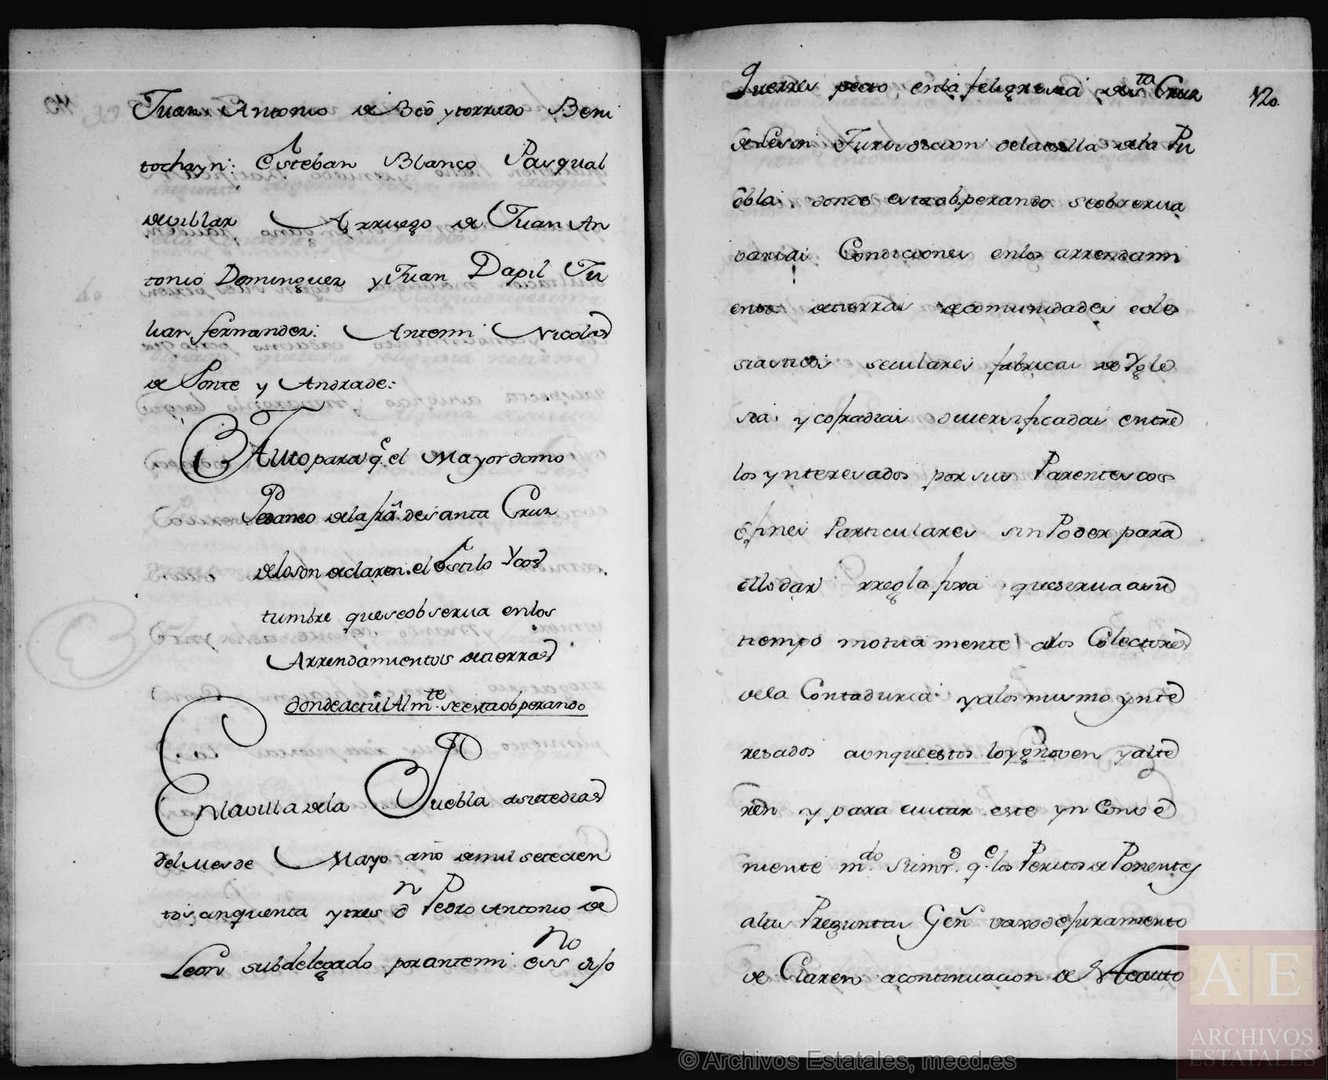 Juan Antonio de Bcô y torrado Beni
tochayn: Esteban Blanco Pasqual
de villar Arruego de Juan An
tonio Dominguez y Juan Dapil Ju
lian fernandez: Antemi Nicolas
de Ponte y Andrade:
Auto para q.e el Mayordomo
Pedaneo de la fra. de santa Cruz
de loson declaren. el Estilo Y cos
tumbre que se observa en los
Arrendamientos de tierras
donde actûl Alm.te se esta obperando
En la villa de la Puebla a siete dias
del mes de Mayo año de mil setecien
tos cinquenta y tres d.n Pedro Antonio de
Leon subdelegado por antemi ess.no dijo
Querrer pero en la feligresia de s.ta Cruz
de Leson Jurisdicion de la villa de la Pu
ebla donde estaobperando se obrerua
varias Condiciones en los arrendami
entos de tierras de comunidades ecle
siasticos seculares fabricas de Ygle
sia y cofradias diversificadas entre
los ynteresados por sus Parentescos
ô fines Particulares sin Poder para
ello dar rregla fixa que sirva a un
tiempo motua mente a los Colectores
de la Contaduria y a los mismo ynte
resados aunque estos lo ygnoren y alte
ren y para evitar este yn Conve
niente m.do su mr.d q.e los Peritos de Ponentes
alas Preguntas Gen vaxo de juramento
de Claren a continuacion de este auto
120
© Archivos Estatales, mecd.es
AE
ARCHIVOS
ESTATALES